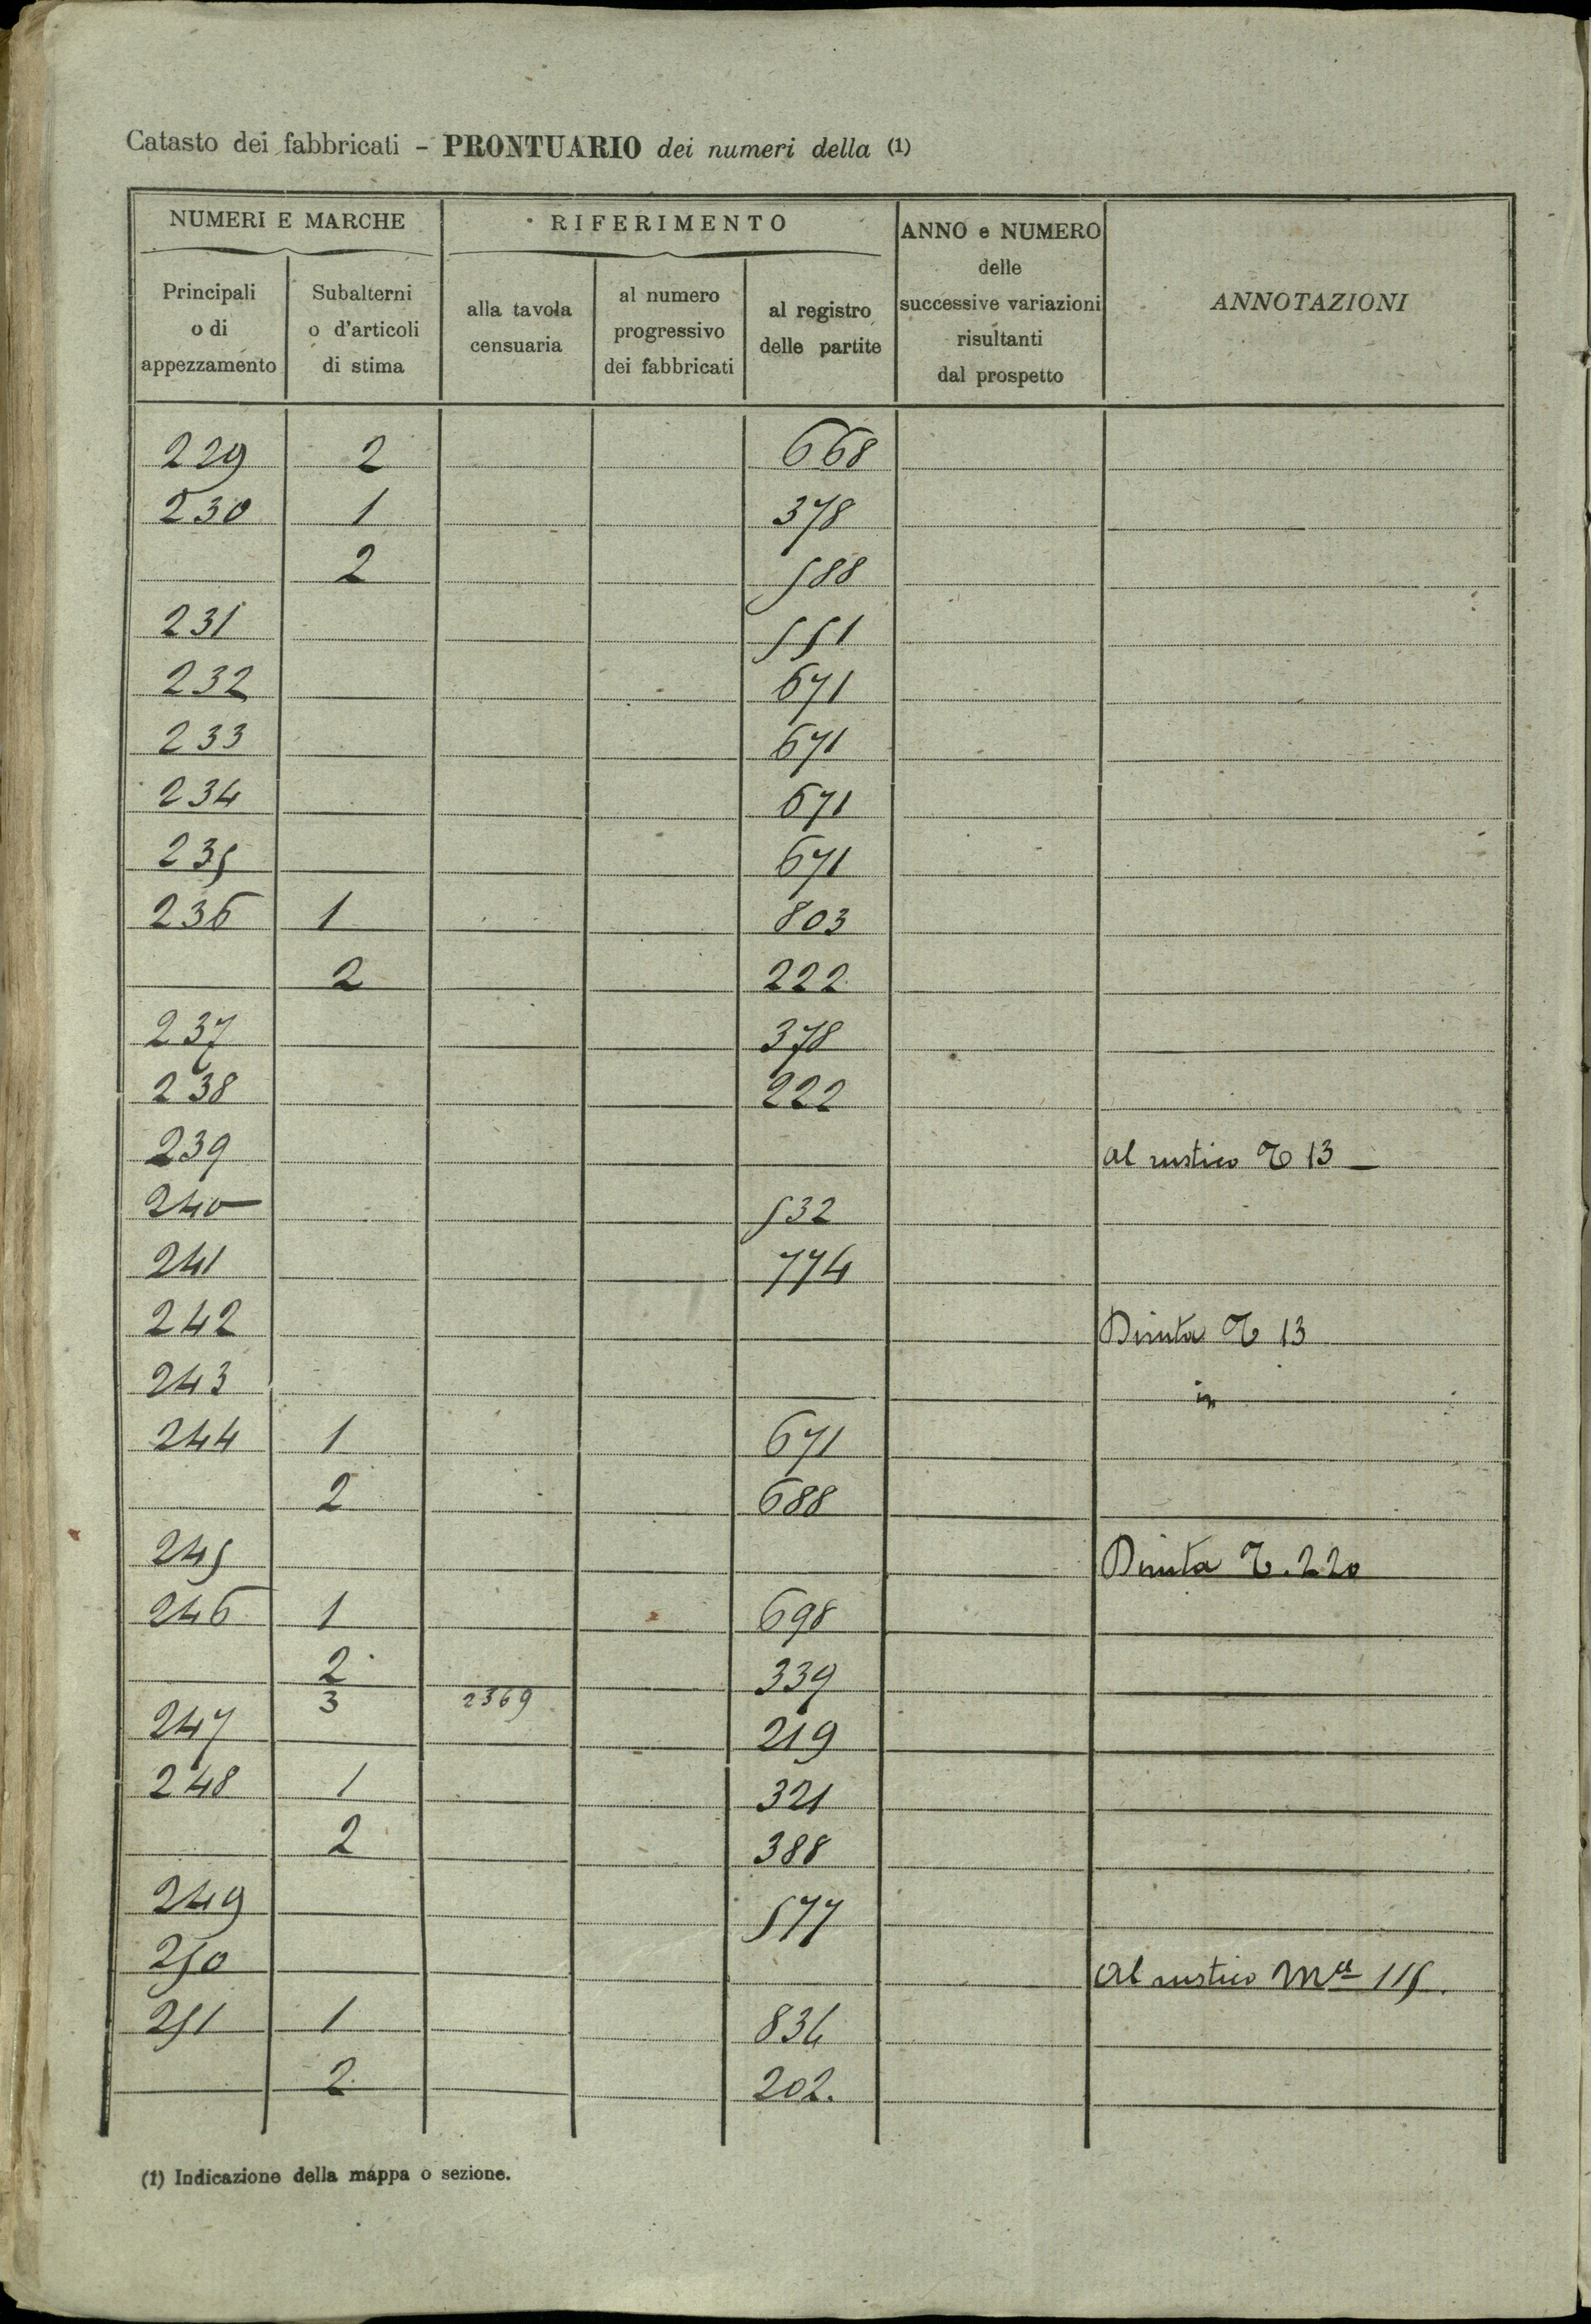 Catasto dei fabbricati - PRONTUARIO dei numeri della (1)
NUMERI E MARCHE
RIFERIMENTO
ANNO e NUMERO
delle
successive variazioni
risultanti
dal prospetto
ANNOTAZIONI
Principali
o di
appezzamento
Subalterni
o d'articoli
di stima
alla tavola
censuaria
al numero
progressivo
dei fabbricati
al registro
delle partite
229 2 668
230 1 378
2 588
231 551
232 671
233 671
234 671
235 671
236 1 803
2 222
237 378
238 222
239 al rustico T 13
240 532
241 774
242 Diruta T 13
243 in
244 1 671
2 688
245 Diruta T. 220
246 1 698
2 339
3 2369
247 219
248 1 321
2 388
249 577
250 al rustico Ma 115.
251 1 834
2 202.
(1) Indicazione della mappa o sezione.